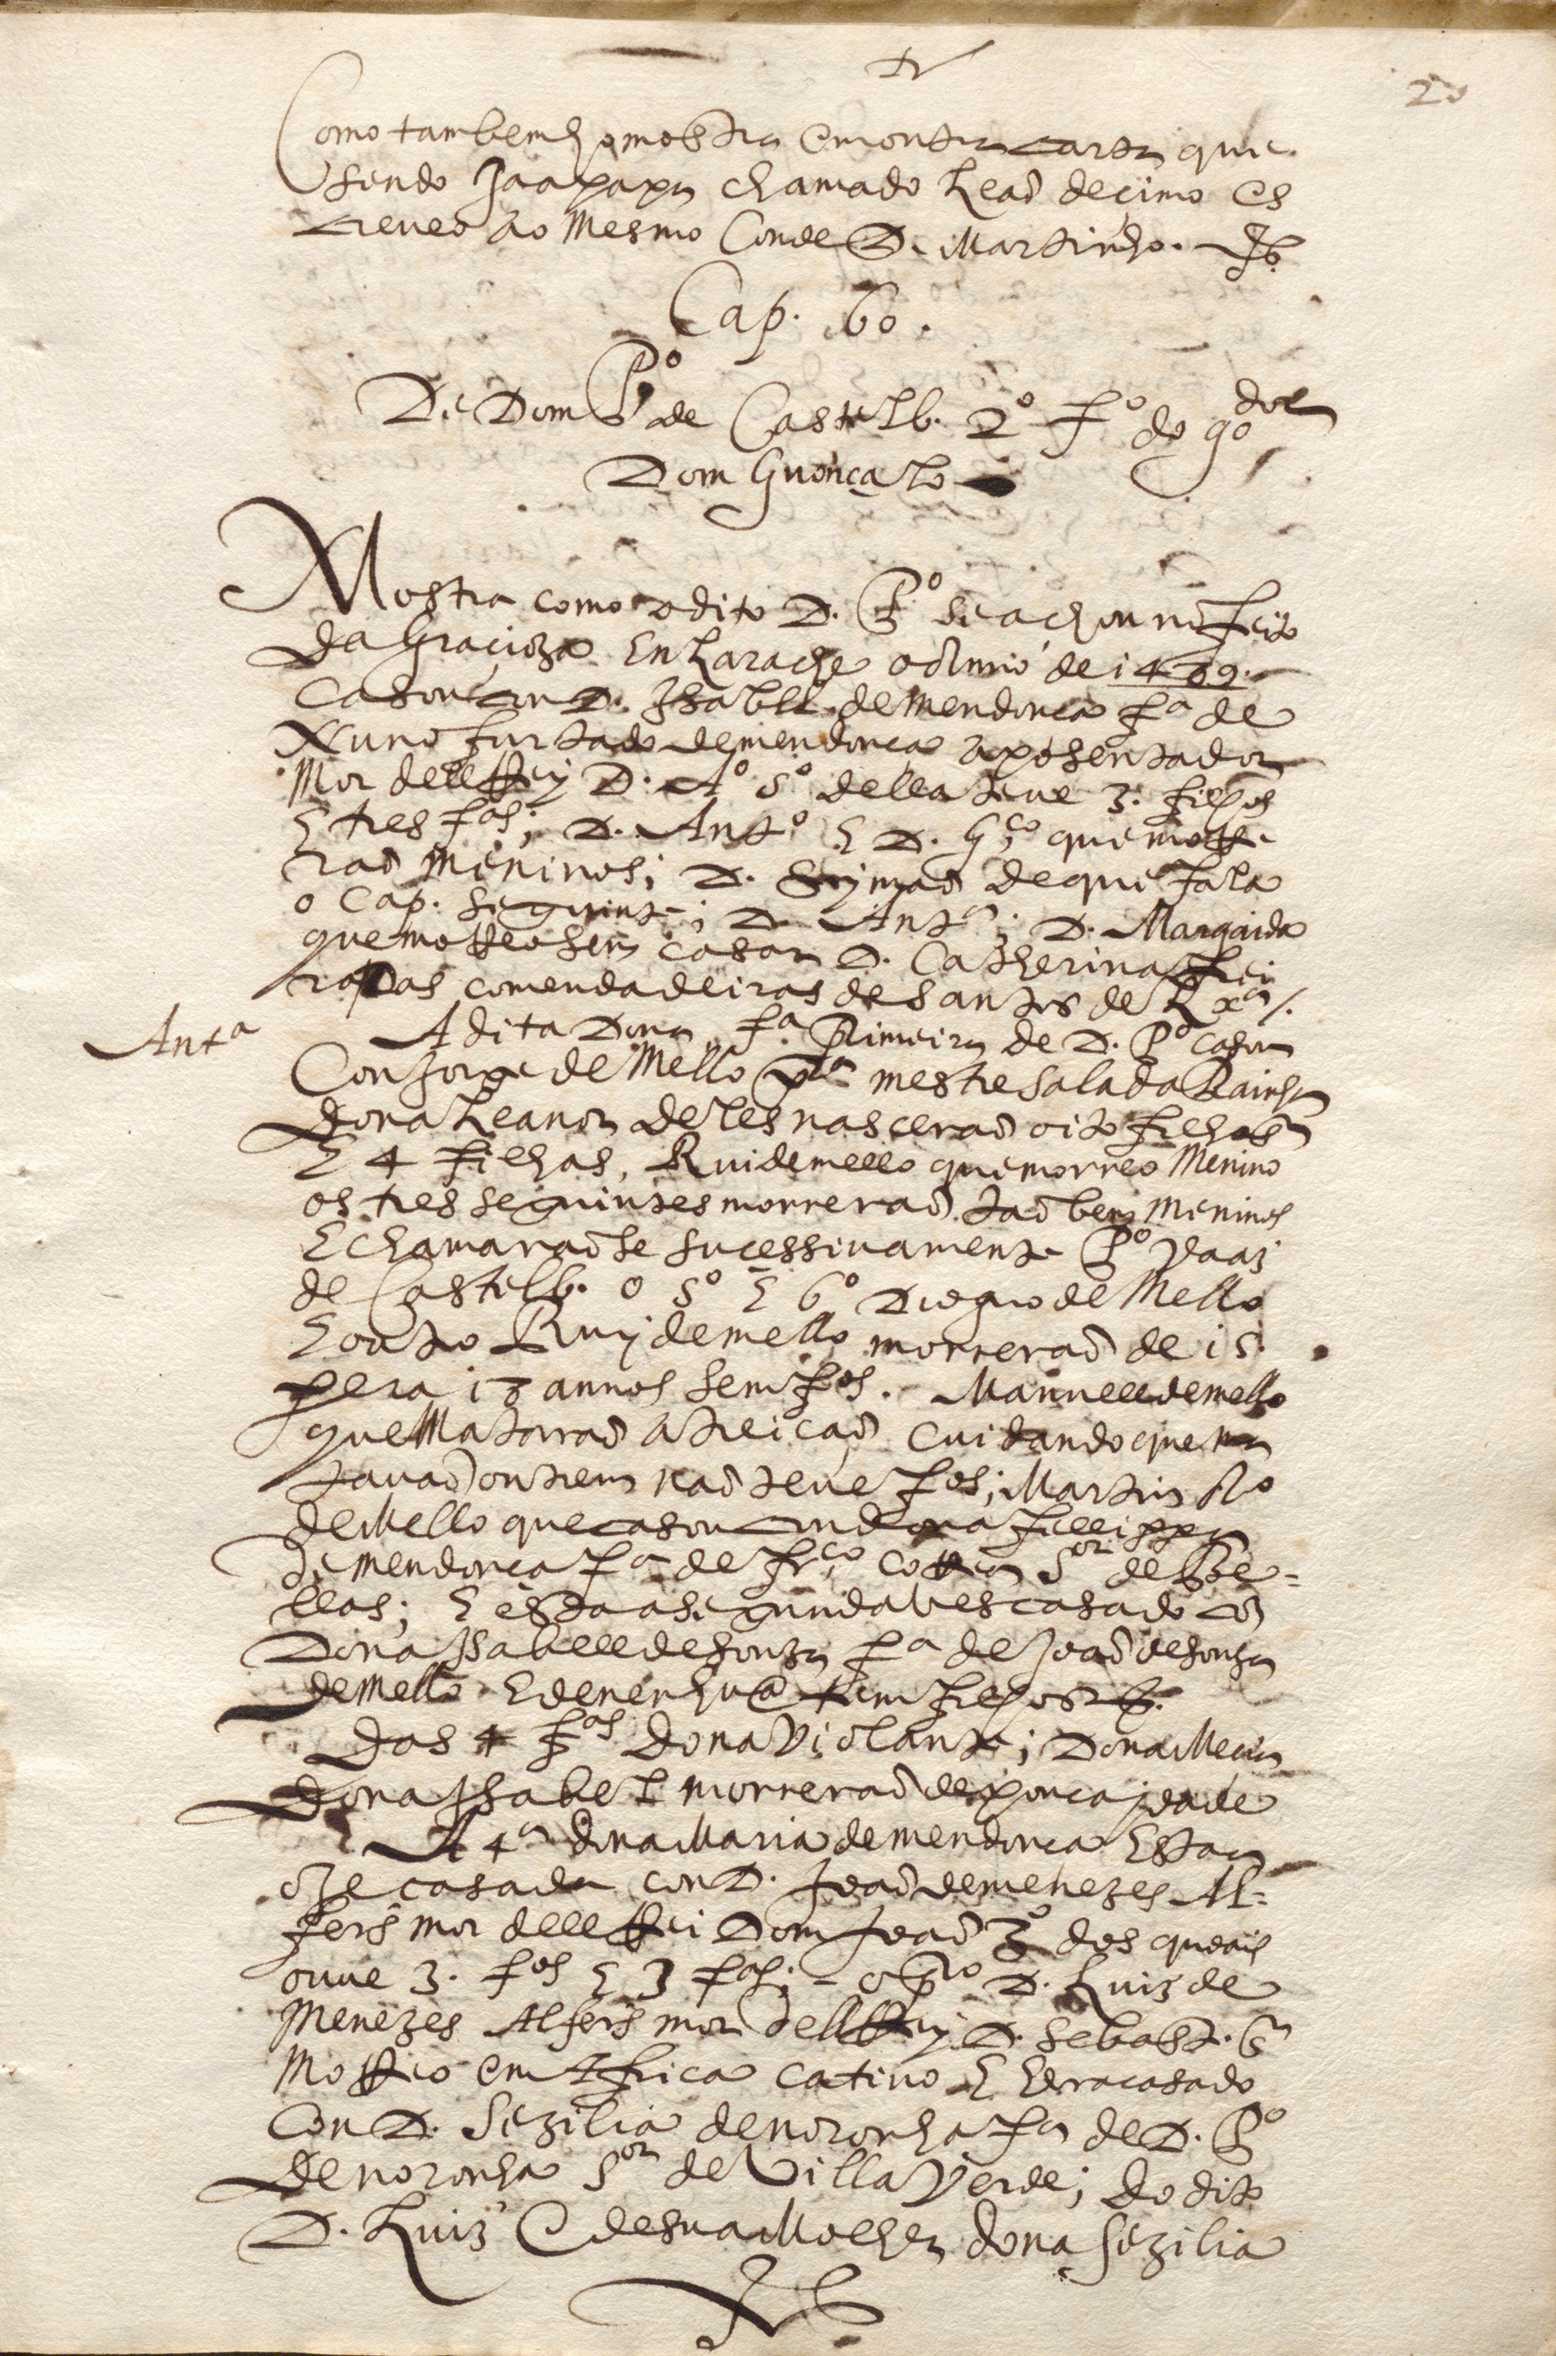 20
Como tambem o mostra em outra carta que
sendo Ja a papa chamado Leaõ decimo es
creueo ao Mesmo Conde D. Martinho.
Cap. 60.
De Dom P.º de Castelb. 2º f.º do g.ºdor
Dom Guonçalo
Mostra como o dito D. P.º se achou no feito
da Gracioza En Larache o Anno de 1489.
Casou con D. Isabel de Mendonça f.ª de
Nuno furtado de mendonça aposentador
Mor delRey D. A.º 5º della teue 3. filhos
E tres f.as; D. Ant.º E D. G.co que morre-
raõ meninos; D. Simaõ de que fala
o Cap. seguinte; D. Ant.ª; D. Margaida
que morreo sem casar D. Catherina frei
ra das comendadeiras de Santos de Lx.ª
Ant.ª
A dita Dona f.ª Primeira de D. P.º casou
Con Jorge de Mello mestre sala da Rainha
Dona Leanor deles nasceraõ oito filhos
E 4 filhas, Rui de mello que morreo Menino
os tres seguintes morreraõ taõ bem Meninos
E chamaraõse sucessiuamente P.º Vaaz
de Castelb. o 5º E 6º Dioguo de Mello
E outro Ruy de mello morreraõ de 15.
pera 18 annos sem f.os. Manuel de mello
que Mataraõ a treiçaõ Cuidando que ma
tauaõ outrem naõ teue f.os; Martin A.º
de Mello que casou con dona fillippa
de mendonça f.ª de fr.co correa S.or de Be=
llas; E esta a segunda ves casado cõ
Dona Isabel de souza f.ª de Joaõ de souza
de mello E de nenhuã tem filhos
Das 4 f.as dona Violante; Dona Mecia
dona Isabel morreraõ de pouca jdade
A 4.ª dona Maria de mendonça Esta
oJe casada con D. Joaõ de menezes Al=
feris mor delRei Dom Joaõ 3º dos quais
ouue 3. f.os E 3 f.as; o pr.º D. Luiz de
Menezes Alferis mor delRey D. Sebast.
Morreo em Africa catiuo E Era casado
Con D. Sezilia de noronha f.ª de D. P.º
de noronha S.or de Villa Verde; do dito
D. Luiz E de sua Molher dona Sezilia